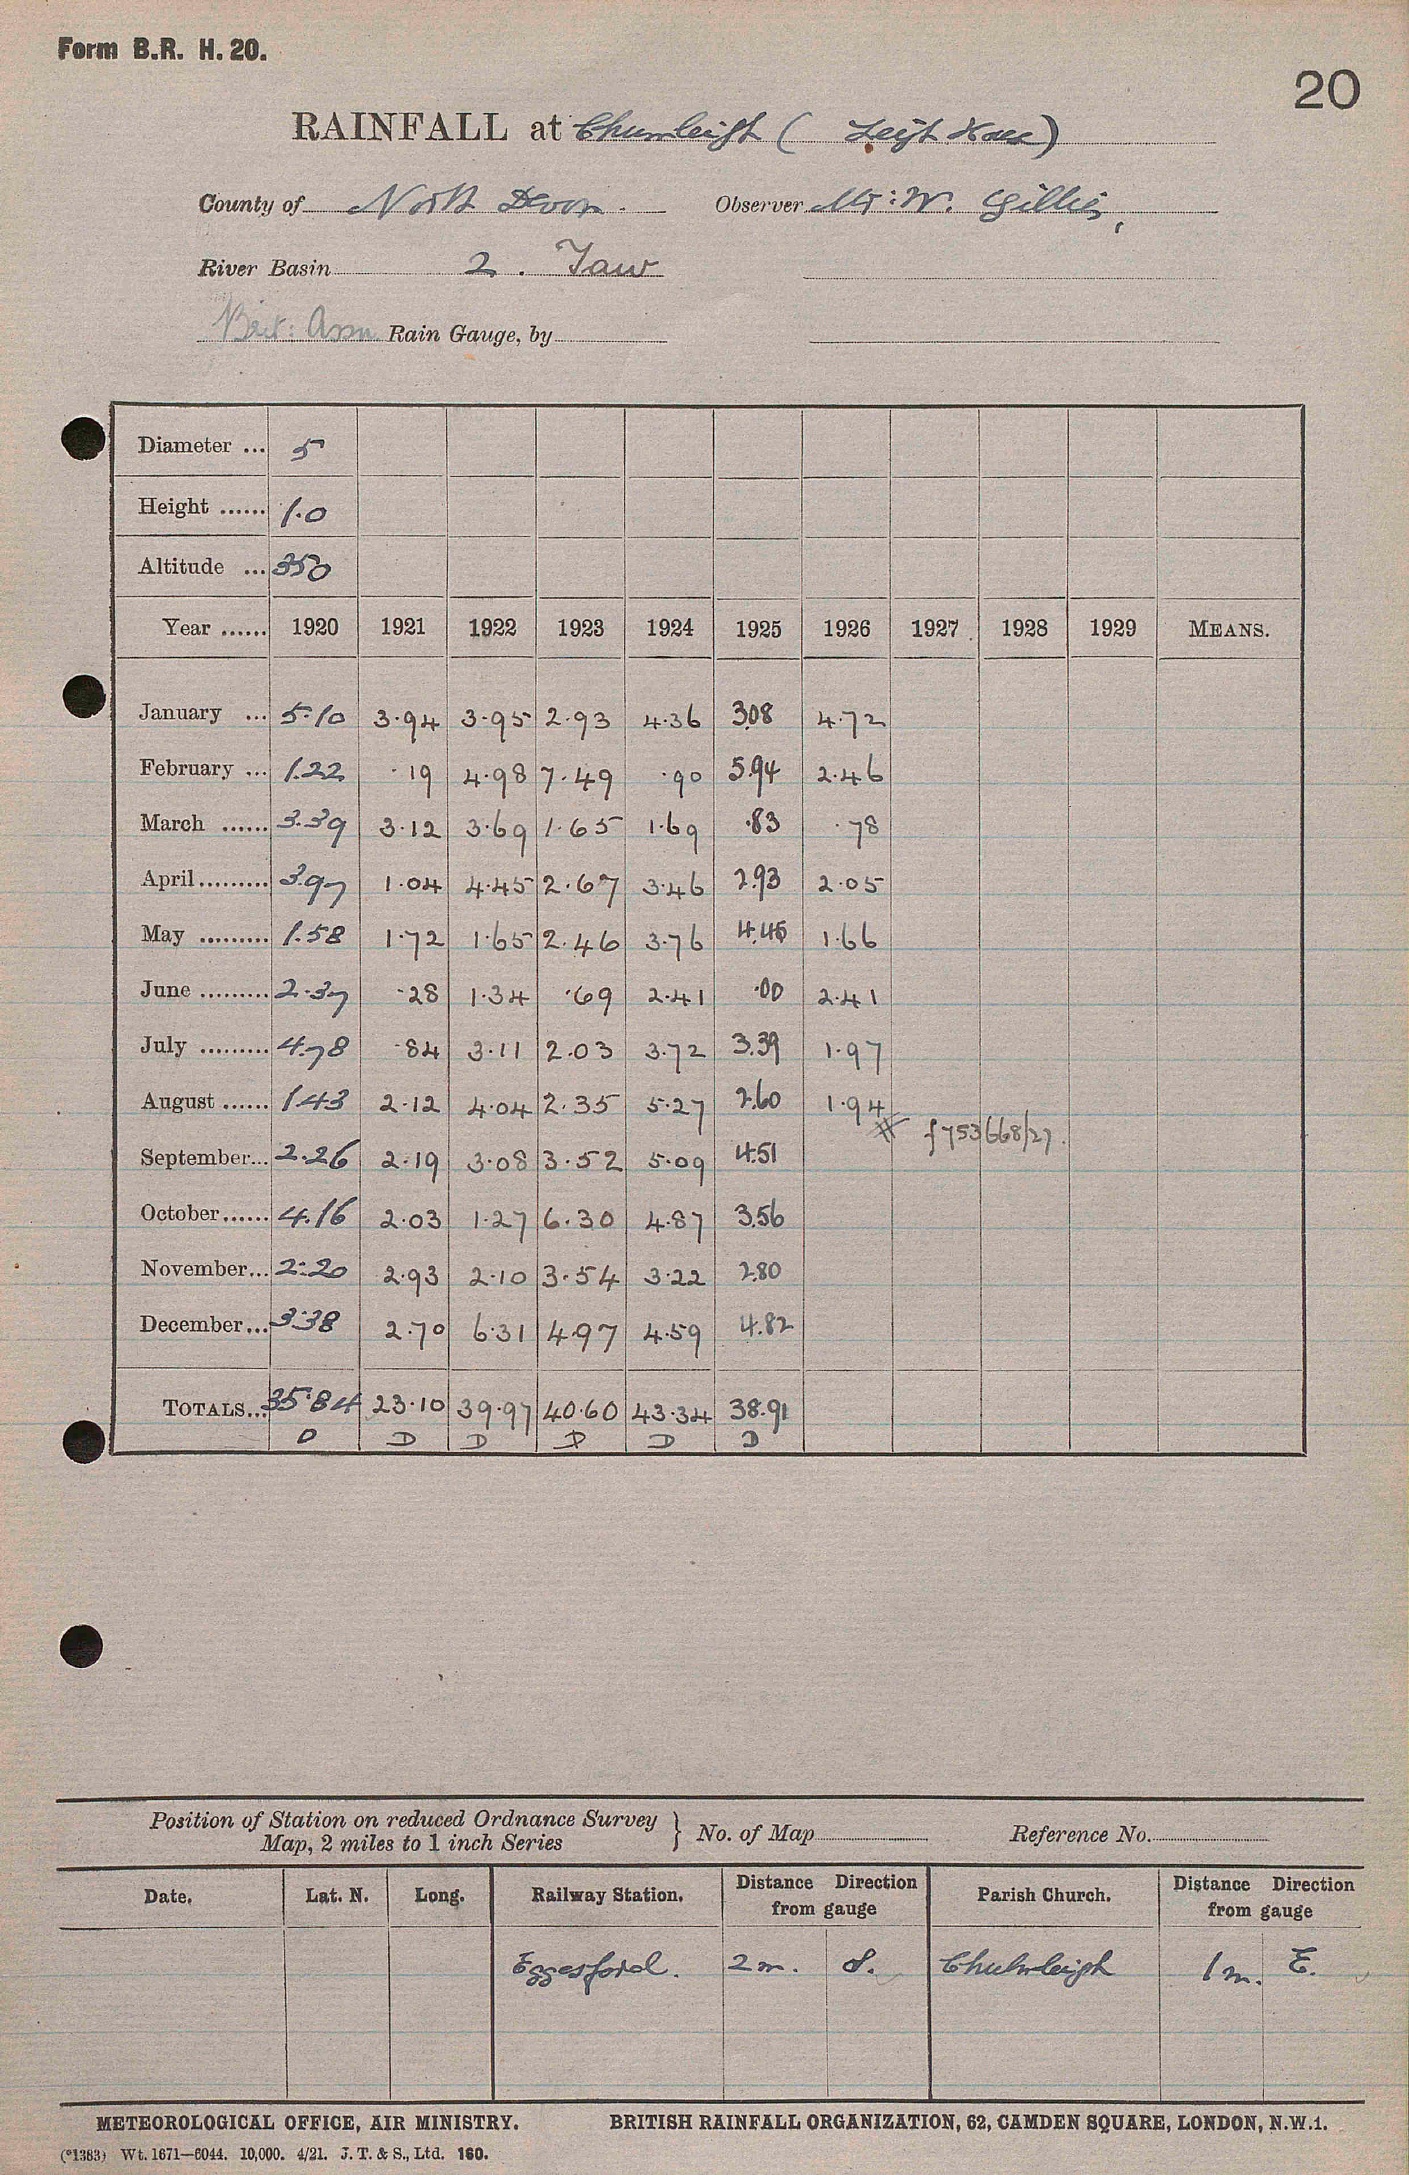 Form B.R. H. 20.
20
RAINFALL at Chumleigh (Leigh House)
County of North Devon. Observer Mr: W. Gillis,
River Basin 2. Taw
Brit: Assn Rain Gauge, by
Diameter ... 5
Height ...... 1.0
Altitude ... 350
Year ...... 1920 1921 1922 1923 1924 1925 1926 1927 1928 1929 MEANS.
January ... 5.10 3.94 3.95 2.93 4.36 3.08 4.72
February ... 1.22 .19 4.98 7.49 .90 5.94 2.46
March ...... 3.39 3.12 3.69 1.65 1.69 .83 .78
April ......... 3.97 1.04 4.45 2.67 3.46 2.93 2.05
May ......... 1.58 1.72 1.65 2.46 3.76 4.45 1.66
June ......... 2.37 .28 1.34 .69 2.41 .00 2.41
July ......... 4.78 .84 3.11 2.03 3.72 3.39 1.97
August ...... 1.43 2.12 4.04 2.35 5.27 2.60 1.94
# f 753668/27.
September... 2.26 2.19 3.08 3.52 5.09 4.51
October...... 4.16 2.03 1.27 6.30 4.87 3.56
November... 2.20 2.93 2.10 3.54 3.22 2.80
December... 3.38 2.70 6.31 4.97 4.59 4.82
TOTALS... 35.84 23.10 39.97 40.60 43.34 38.91
D D D D D D
Position of Station on reduced Ordnance Survey
Map, 2 miles to 1 inch Series } No. of Map Reference No.
Date. Lat. N. Long. Railway Station. Distance Direction from gauge Parish Church. Distance Direction from gauge
Eggesford. 2 m. S. Chulmleigh 1 m. E.
METEOROLOGICAL OFFICE, AIR MINISTRY. BRITISH RAINFALL ORGANIZATION, 62, CAMDEN SQUARE, LONDON, N.W.1.
(*1383) Wt. 1671—6044. 10,000. 4/21. J. T. & S., Ltd. 160.